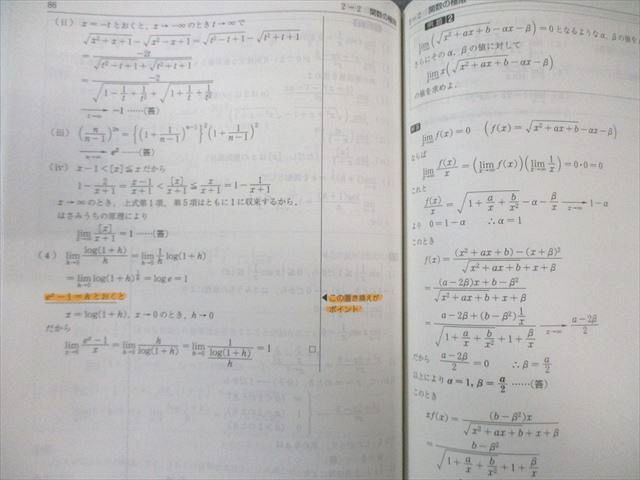 86
2－2 関数の極限
(ii) x=-t とおくと, x→-∞ のとき t→∞ で
√(x²+x+1)-√(x²-x+1)=√(t²-t+1)-√(t²+t+1)
=-2t/(√(t²-t+1)+√(t²+t+1))
=-2/(√(1-1/t+1/t²)+√(1+1/t+1/t²))
→-1 ……(答)
(iii) (n/(n-1))²ⁿ={(1+1/(n-1))ⁿ⁻¹}²(1+1/(n-1))²
→e² ……(答)
(iv) x-1<[x]≦x だから
1-2/(x+1)=(x-1)/(x+1)<[x]/(x+1)≦x/(x+1)=1-1/(x+1)
x→∞ のとき, 上式第1項, 第5項はともに1に収束するから,
はさみうちの原理により
lim [x]/(x+1)=1 ……(答)
(4) lim(h→0) log(1+h)/h=lim(h→0) (1/h)log(1+h)
=lim(h→0) log(1+h)^(1/h)=log e=1
eˣ-1=h とおくと
◀この置き換えが
ポイント
x=log(1+h), x→0 のとき, h→0
だから
lim(x→0) (eˣ-1)/x=lim(h→0) h/log(1+h)=lim(h→0) 1/(log(1+h)/h)=1 □
2－2 関数の極限
例題 2
lim(x→∞)(√(x²+ax+b)-αx-β)=0 となるような α, β の値を
さらにその α, β の値に対して
lim(x→∞) x(√(x²+ax+b)-αx-β)
の値を求めよ.
lim(x→∞) f(x)=0 (f(x)=√(x²+ax+b)-αx-β)
ならば
lim(x→∞) f(x)/x=(lim(x→∞) f(x))(lim(x→∞) 1/x)=0・0=0
これと
f(x)/x=√(1+a/x+b/x²)-α-β/x →(x→∞) 1-α
より 0=1-α ∴α=1
このとき
f(x)=((x²+ax+b)-(x+β)²)/(√(x²+ax+b)+x+β)
=((a-2β)x+b-β²)/(√(x²+ax+b)+x+β)
=(a-2β+(b-β²)1/x)/(√(1+a/x+b/x²)+1+β/x) →(x→∞) (a-2β)/2
だから (a-2β)/2=0 ∴β=a/2
以上により α=1, β=a/2 ……(答)
このとき
xf(x)=(b-β²)x/(√(x²+ax+b)+x+β)
=(b-β²)/(√(1+a/x+b/x²)+1+β/x)